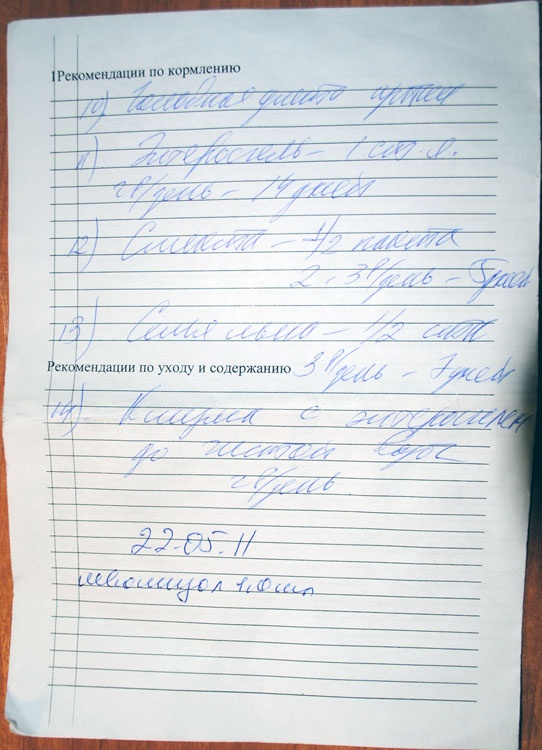 1Рекомендации по кормлению
10) Голодная диета
11) Энтеросгель – 1 ст. л.
2 р/день – 14 дней
12) Смекта – 1/2 пакета
2-3 р/день – 5 дней
13) Семя льна – 1/2 стак
Рекомендации по уходу и содержанию 3 р/день – 7 дней
14) Клизма с энтеросгелем
до чистой воды
2 р/день
22.05.11